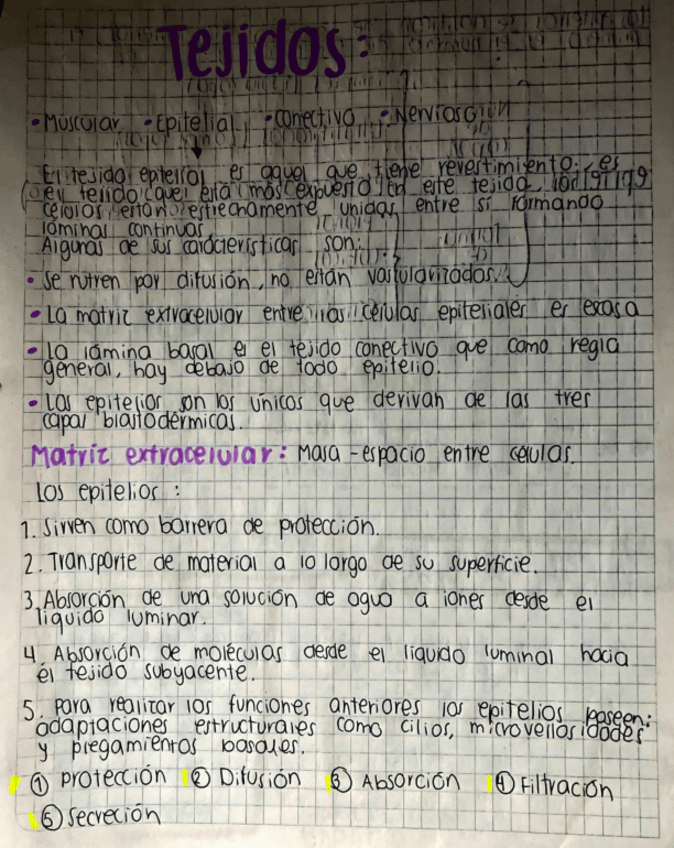 Tejidos:
• Muscular • Epitelial • Conectivo • Nervioso
El tejido epitelial es aquel que tiene revestimiento: es
el tejido que está más expuesto en este tejido, las
células están estrechamente unidas entre sí formando
láminas continuas.
Algunas de sus características son:
• Se nutren por difusión, no están vascularizados.
• La matriz extracelular entre las células epiteliales es escasa
• La lámina basal es el tejido conectivo que como regla
general, hay debajo de todo epitelio.
• Los epitelios son los únicos que derivan de las tres
capas blastodérmicas.
Matriz extracelular: Masa - espacio entre células.
Los epitelios:
1. Sirven como barrera de protección.
2. Transporte de material a lo largo de su superficie.
3. Absorción de una solución de agua a iones desde el
liquido luminar.
4. Absorción de moléculas desde el liquido luminal hacia
el tejido subyacente.
5. Para realizar los funciones anteriores los epitelios poseen:
adaptaciones estructurales como cilios, microvellosidades
y plegamientos basales.
① Protección ② Difusión ③ Absorción ④ Filtración
⑤ Secreción